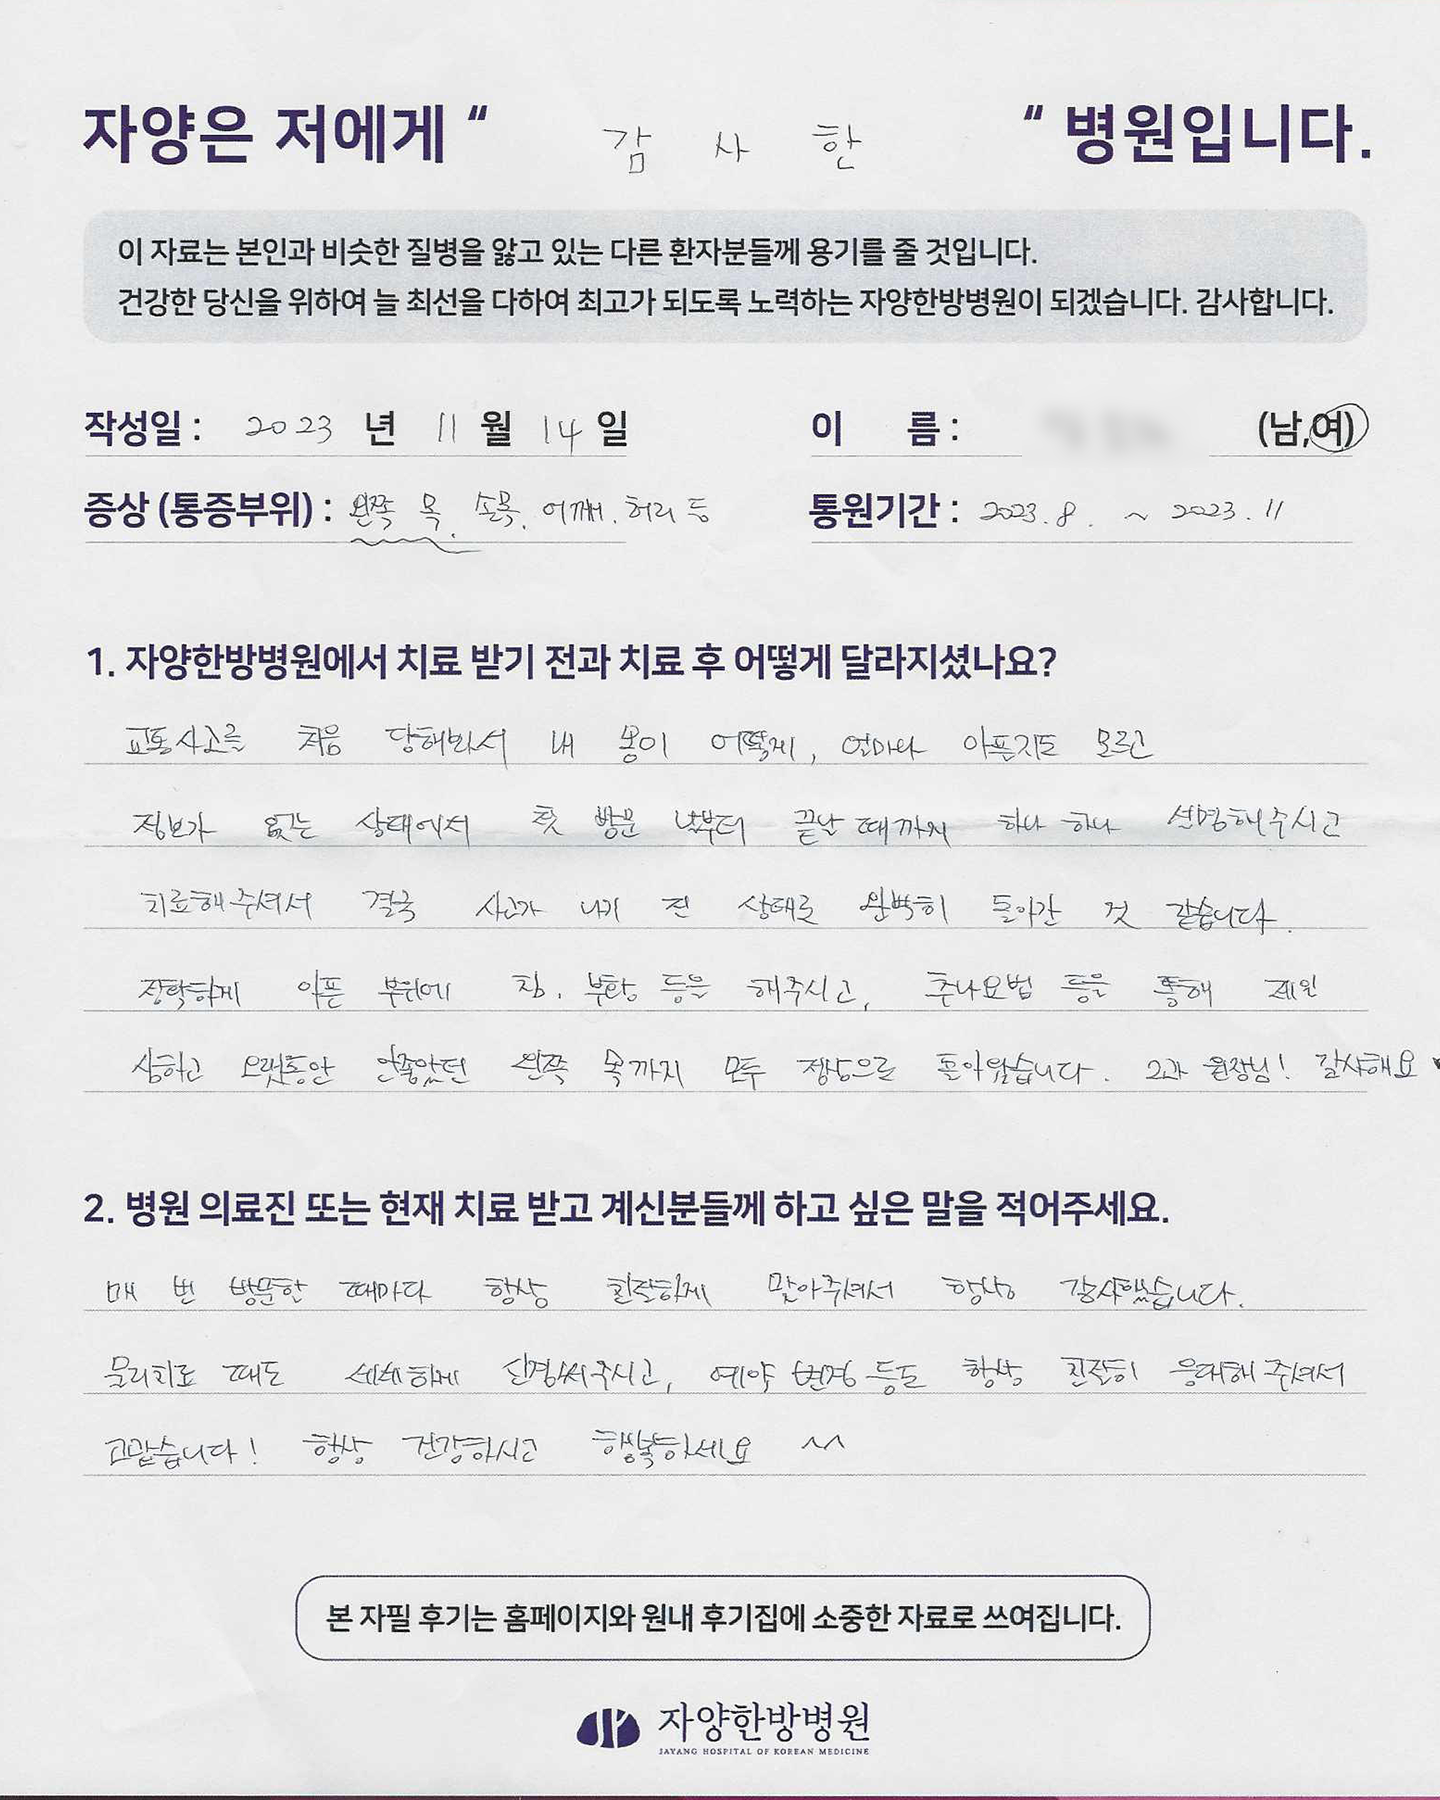 자양은 저에게 " 감 사 한 " 병원입니다.
이 자료는 본인과 비슷한 질병을 앓고 있는 다른 환자분들께 용기를 줄 것입니다.
건강한 당신을 위하여 늘 최선을 다하여 최고가 되도록 노력하는 자양한방병원이 되겠습니다. 감사합니다.
작성일 : 2023 년 11 월 14 일 이 름 : (남,여)
증상 (통증부위) : 왼쪽 목. 손목. 어깨. 허리 등 통원기간 : 2023. 8. ~ 2023. 11
1. 자양한방병원에서 치료 받기 전과 치료 후 어떻게 달라지셨나요?
교통사고를 처음 당해봐서 내 몸이 어떻게, 얼마나 아픈지도 모르고
정보가 없는 상태에서 첫 방문 날부터 끝날 때까지 하나 하나 설명해주시고
치료해주셔서 결국 사고가 나기 전 상태로 완벽히 돌아간 것 같습니다.
정확하게 아픈 부위에 침. 부항 등을 해주시고, 추나요법 등을 통해 제일
심하고 오랫동안 안좋았던 왼쪽 목까지 모두 정상으로 돌아왔습니다. 2과 원장님! 감사해요 ♥
2. 병원 의료진 또는 현재 치료 받고 계신분들께 하고 싶은 말을 적어주세요.
매 번 방문한 때마다 항상 친절하게 맞아주셔서 항상 감사했습니다.
물리치료 때도 세세하게 신경써주시고, 예약 변경 등도 항상 친절히 응대해주셔서
고맙습니다! 항상 건강하시고 행복하세요 ^^
본 자필 후기는 홈페이지와 원내 후기집에 소중한 자료로 쓰여집니다.
자양한방병원
JAYANG HOSPITAL OF KOREAN MEDICINE